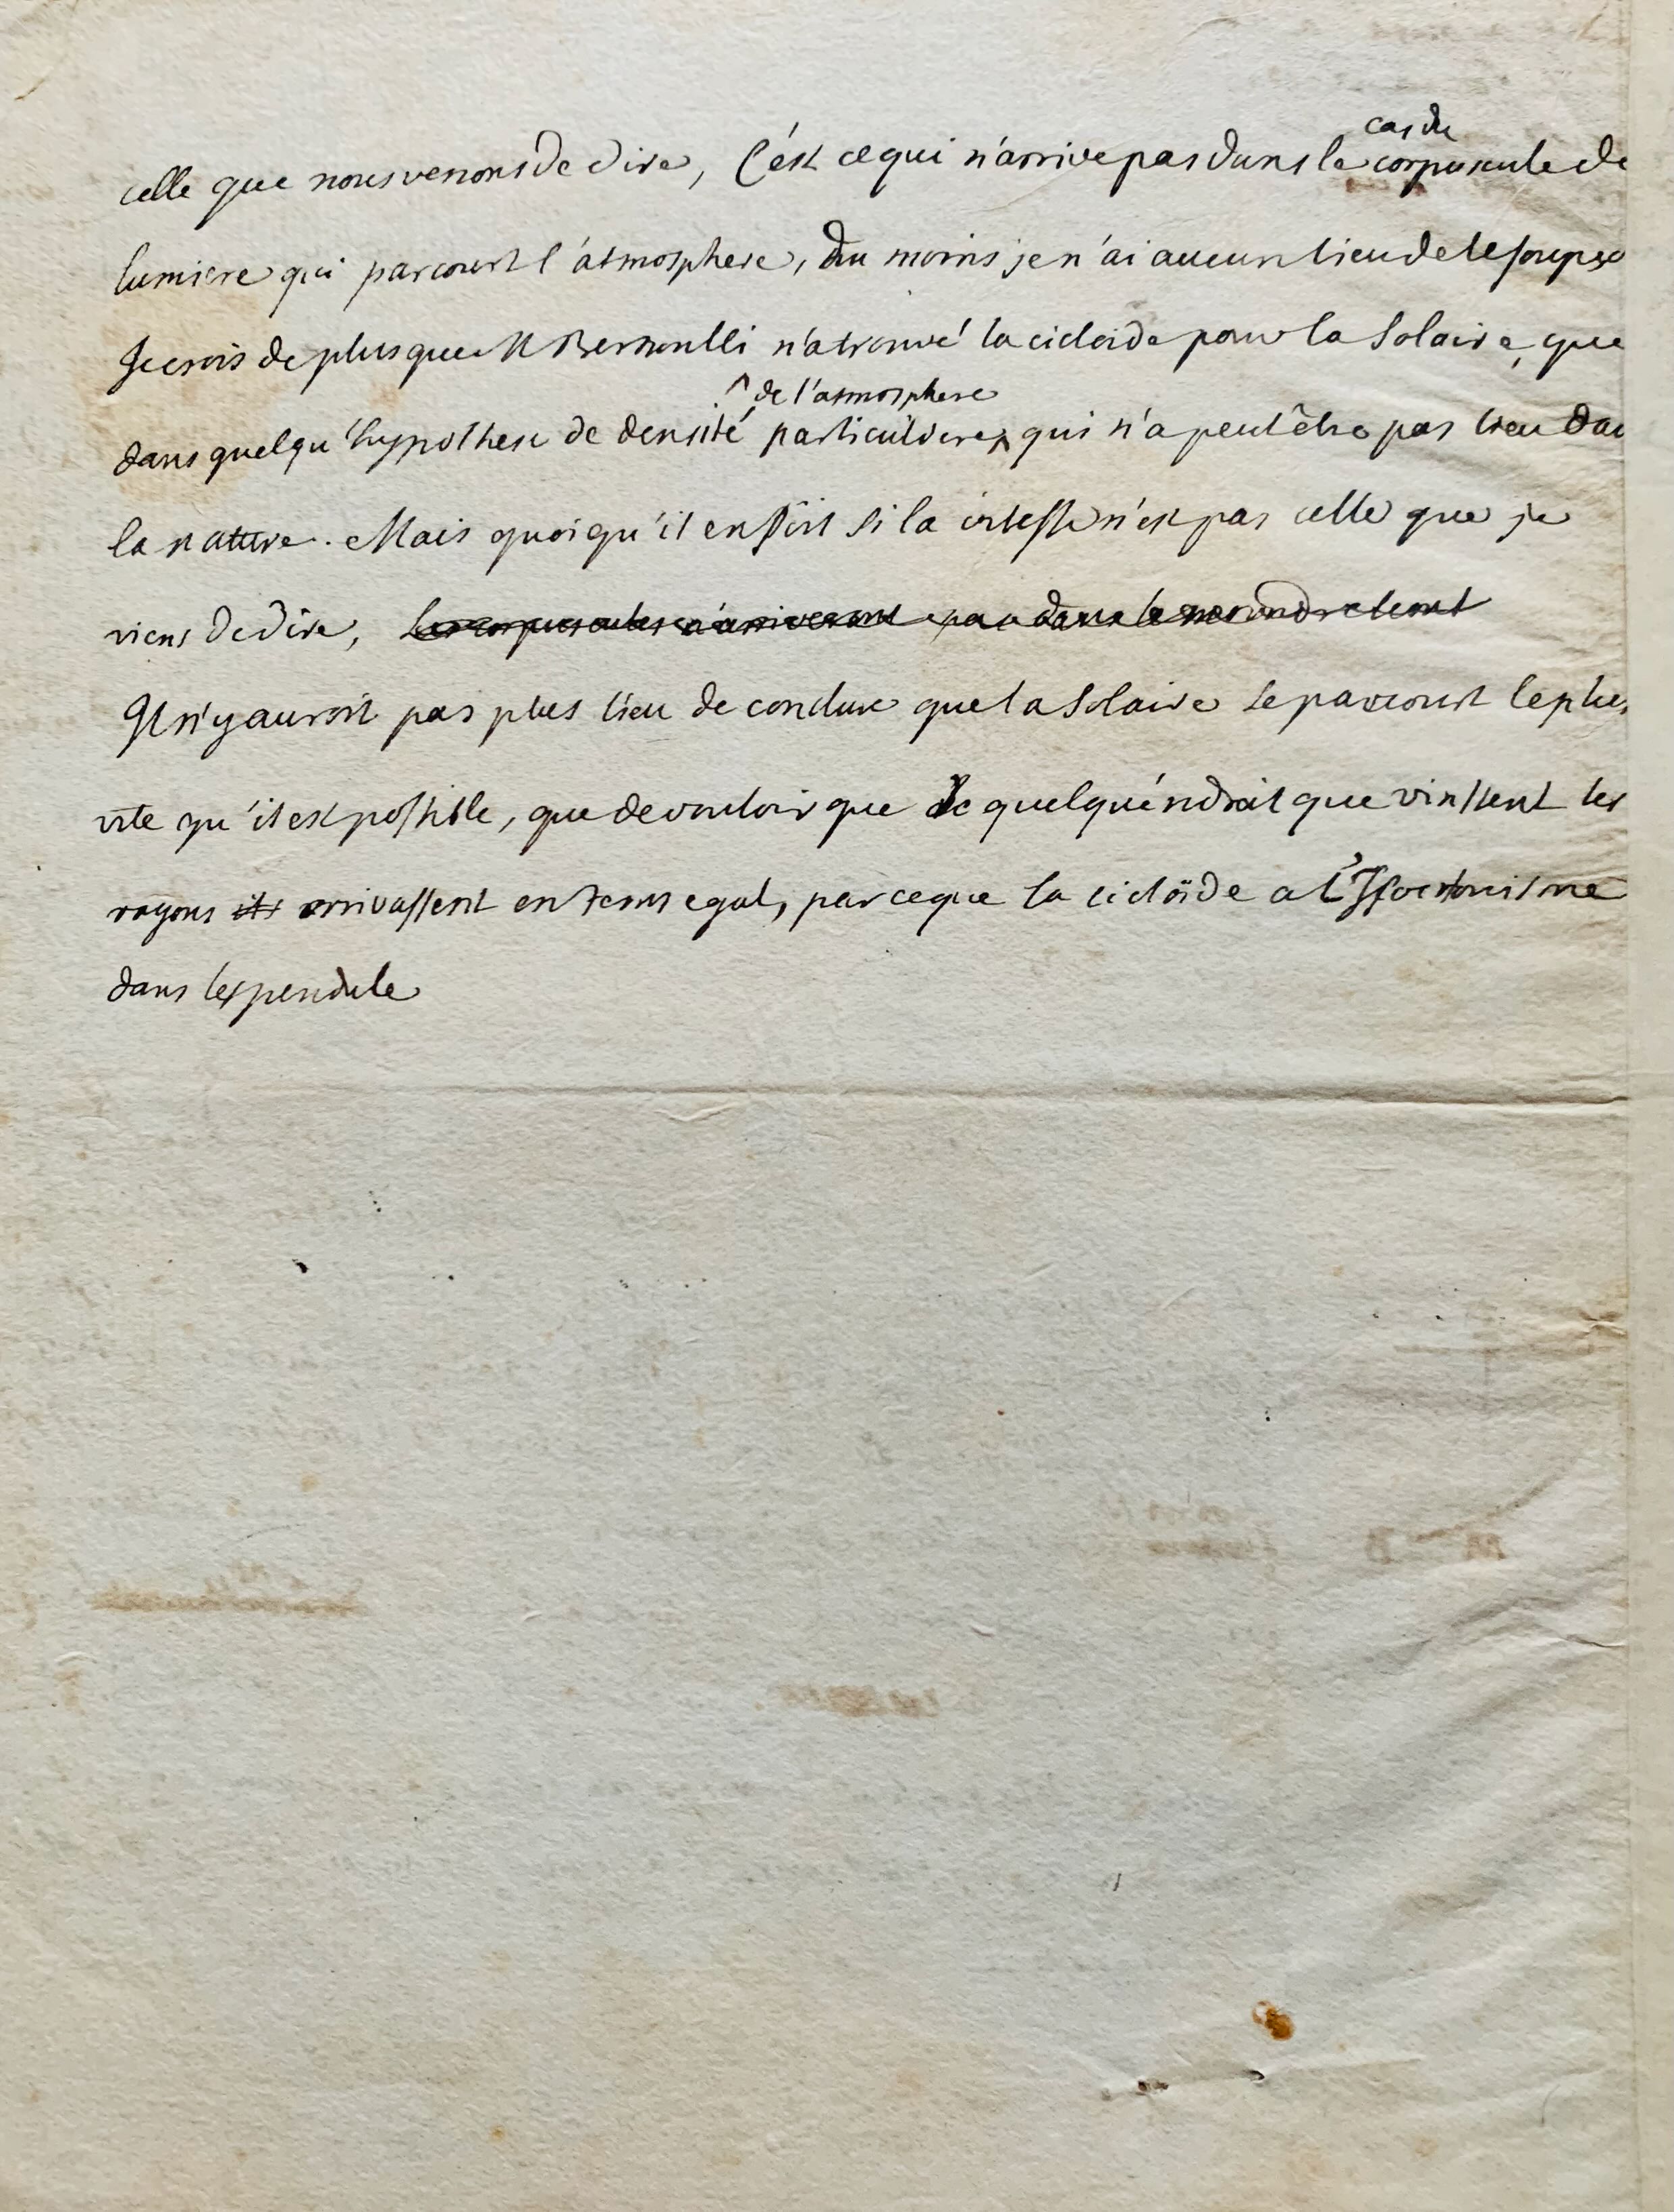 celle que nous venons de dire, C'est ce qui n'arrive pas dans le cas du corpuscule de
lumiere qui parcourt l'atmosphere, du moins je n'ai aucun lieu de le soupço
Je crois de plus que M Bernoulli n'a trouvé la cicloide pour la Solaire, que
dans quelqu'hypothese de densité de l'atmosphere particuliere, qui n'a peut être pas lieu dan
la nature. Mais quoiqu'il en soit si la vitesse n'est pas celle que je
viens de dire, les corpuscules n'arriveront pas dans le moindre tems
Il n'y auroit pas plus lieu de conclure que la Solaire se parcourt le plus
vite qu'il est possible, que de vouloir que de quelqu'éndroit que vinssent les
rayons ils arrivassent en tems egal, parceque la cicloïde a l'Isocronisme
dans les pendule